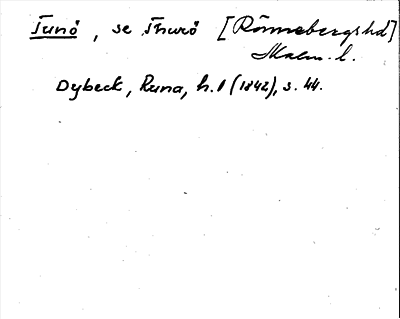 Tunö, se Thurö [Rönnebergshd]
Malm. l.
Dybeck, Runa, h. 1 (1842), s. 44.